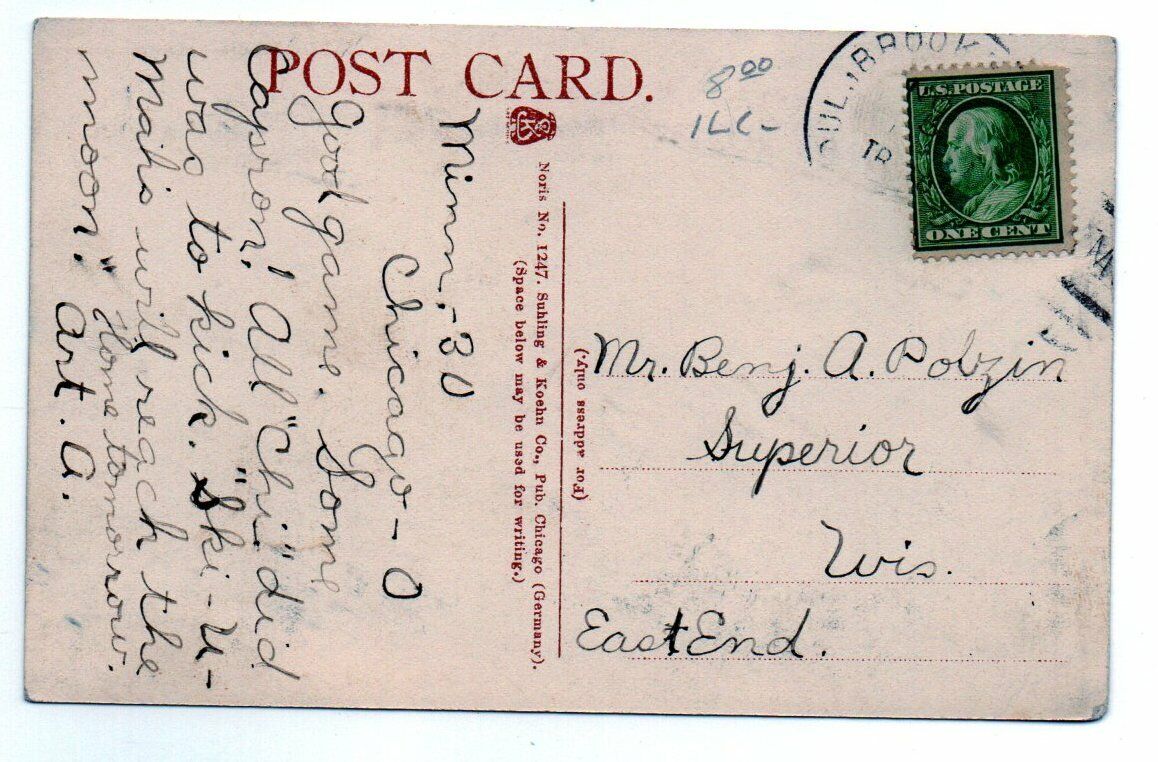 POST CARD.
8⁰⁰
ILC-
U.S. POSTAGE
ONE CENT
Noris No. 1247. Suhling & Koehn Co., Pub. Chicago (Germany).
(Space below may be used for writing.)
(For address only.)
Minn.-30
Chicago-0
Good game. Some
Capron! All "Chi" did
was to kick. "Ski-U-
Mah's will reach the
moon." Home tomorrow.
Art. A.
Mr. Benj. A. Polzin
Superior
Wis.
East End.